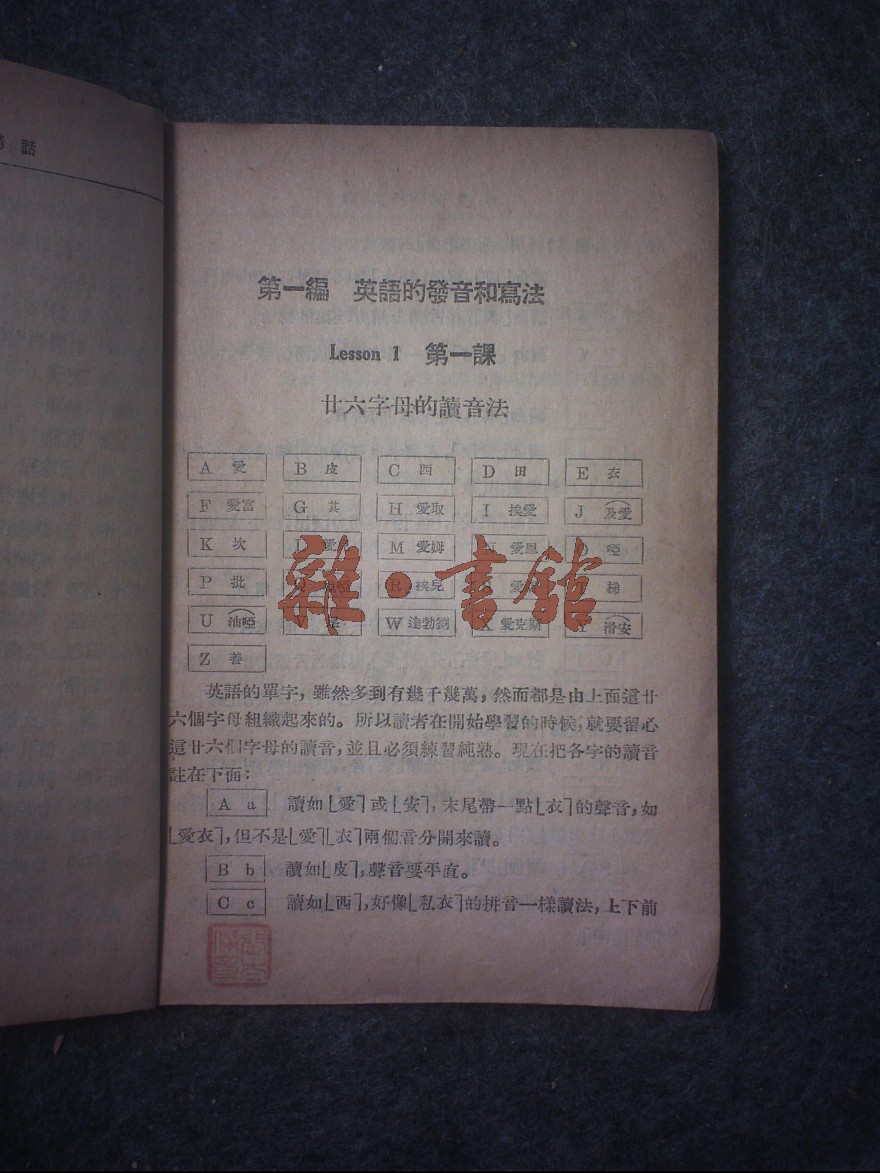 話
第一編 英語的發音和寫法
Lesson 1 第一課
廿六字母的讀音法
A 愛 B 皮 C 西 D 田 E 衣
F 愛富 G 其 H 愛取 I 挨愛 J 及愛
K 坎 M 愛姆 愛恩 啞
P 批 R 挨兒 梯
U 油啞 W 達勃劉 愛克斯 滑安
Z 善
雜·書舘
英語的單字，雖然多到有幾千幾萬，然而都是由上面這廿
六個字母組織起來的。所以讀者在開始學習的時候，就要留心
這廿六個字母的讀音，並且必須練習純熟。現在把各字的讀音
註在下面：
A a 讀如⎣愛⎤或⎣安⎤，末尾帶一點⎣衣⎤的聲音，如
⎣愛衣⎤，但不是⎣愛⎤⎣衣⎤兩個音分開來讀。
B b 讀如⎣皮⎤，聲音要平直。
C c 讀如⎣西⎤，好像⎣私衣⎤的拼音一樣讀法，上下前